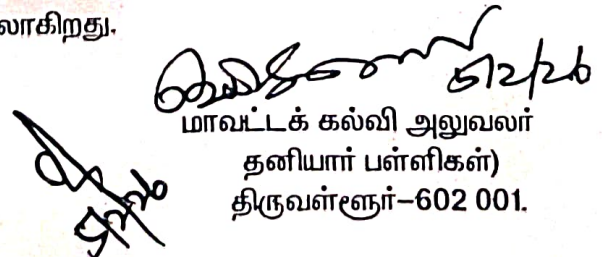 லாகிறது.
5/2/26
மாவட்டக் கல்வி அலுவலர்
தனியார் பள்ளிகள்)
திருவள்ளூர்–602 001.